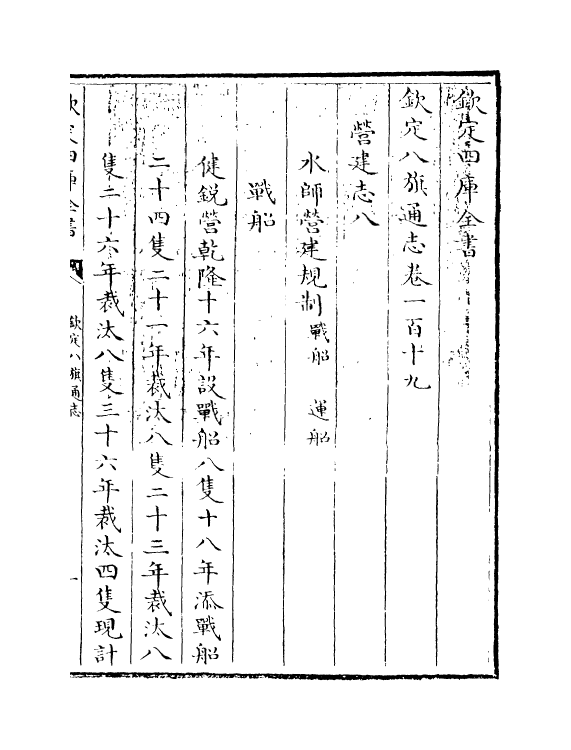 欽定四庫全書
欽定八旗通志卷一百十九
營建志八
水師營建規制 戰船 運船
戰船
健銳營乾隆十六年設戰船八隻十八年添戰船
二十四隻二十一年裁汰八隻二十三年裁汰八
隻二十六年裁汰八隻三十六年裁汰四隻現計
欽定四庫全書
欽定八旗通志
一